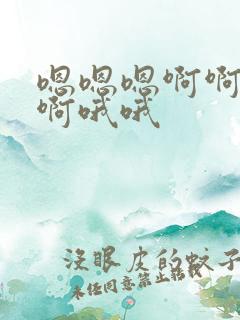 嗯嗯嗯啊啊
啊哦哦
没眼皮的蚊子
未经同意禁止转载